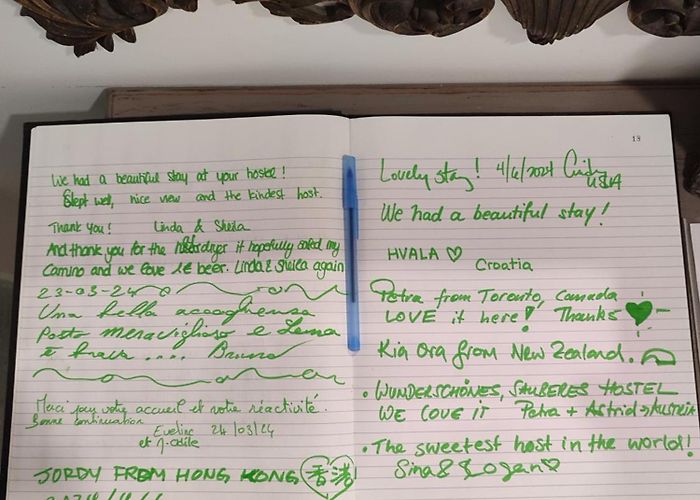 We had a beautiful stay at your hostel!
Slept well, nice view and the kindest host.
Thank you! Linda & Sheila
And thank you for the hairdryer it hopefully saved my
Camino and we love 1€ beer. Linda & Sheila again
23-03-24
Una bella accoglienza
Posto meraviglioso e
è brava .... Bruno
Merci pour votre accueil et votre réactivité.
Bonne continuation
Eveline 24/03/24
et M-Odile
JORDY FROM HONG KONG 香港
18
Lovely stay! 4/4/2024 Cindy
USA
We had a beautiful stay!
HVALA ♡
Croatia
Petra from Toronto, Canada
LOVE it here! Thanks
Kia Ora from New Zealand.
• WUNDERSCHÖNES, SAUBERES HOSTEL
WE LOVE IT Petra + Astrid → Austria
• The sweetest host in the world!
Sina & Logan ♡